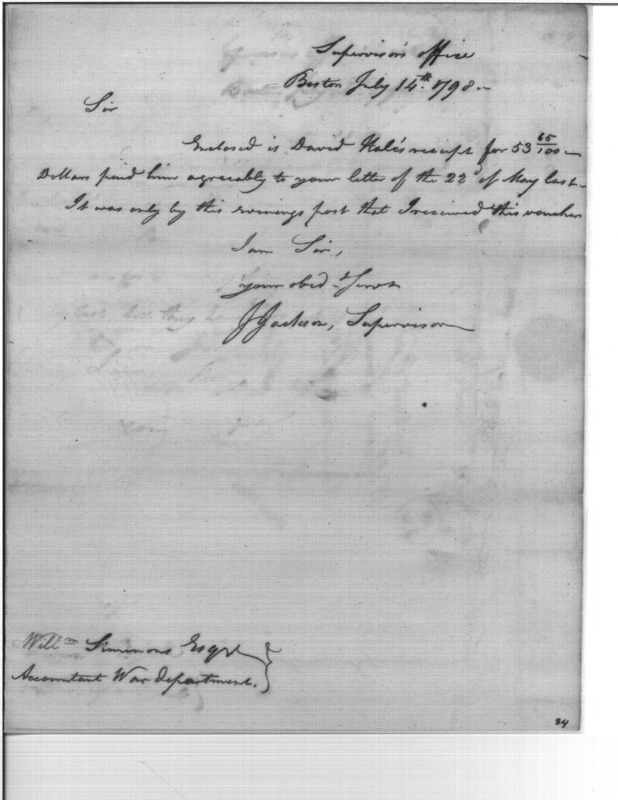 Supervisor's office
Boston July 14th. 1798.
Sir
Enclosed is David Hale's receipt for 53 65/100
Dollars paid him agreeably to your letter of the 22d of May last.
It was only by this evenings post that I received this voucher
I am Sir,
your obedt Servt
J Jackson, Supervisor
Willm Simmons Esqr
Accountant War department.
34